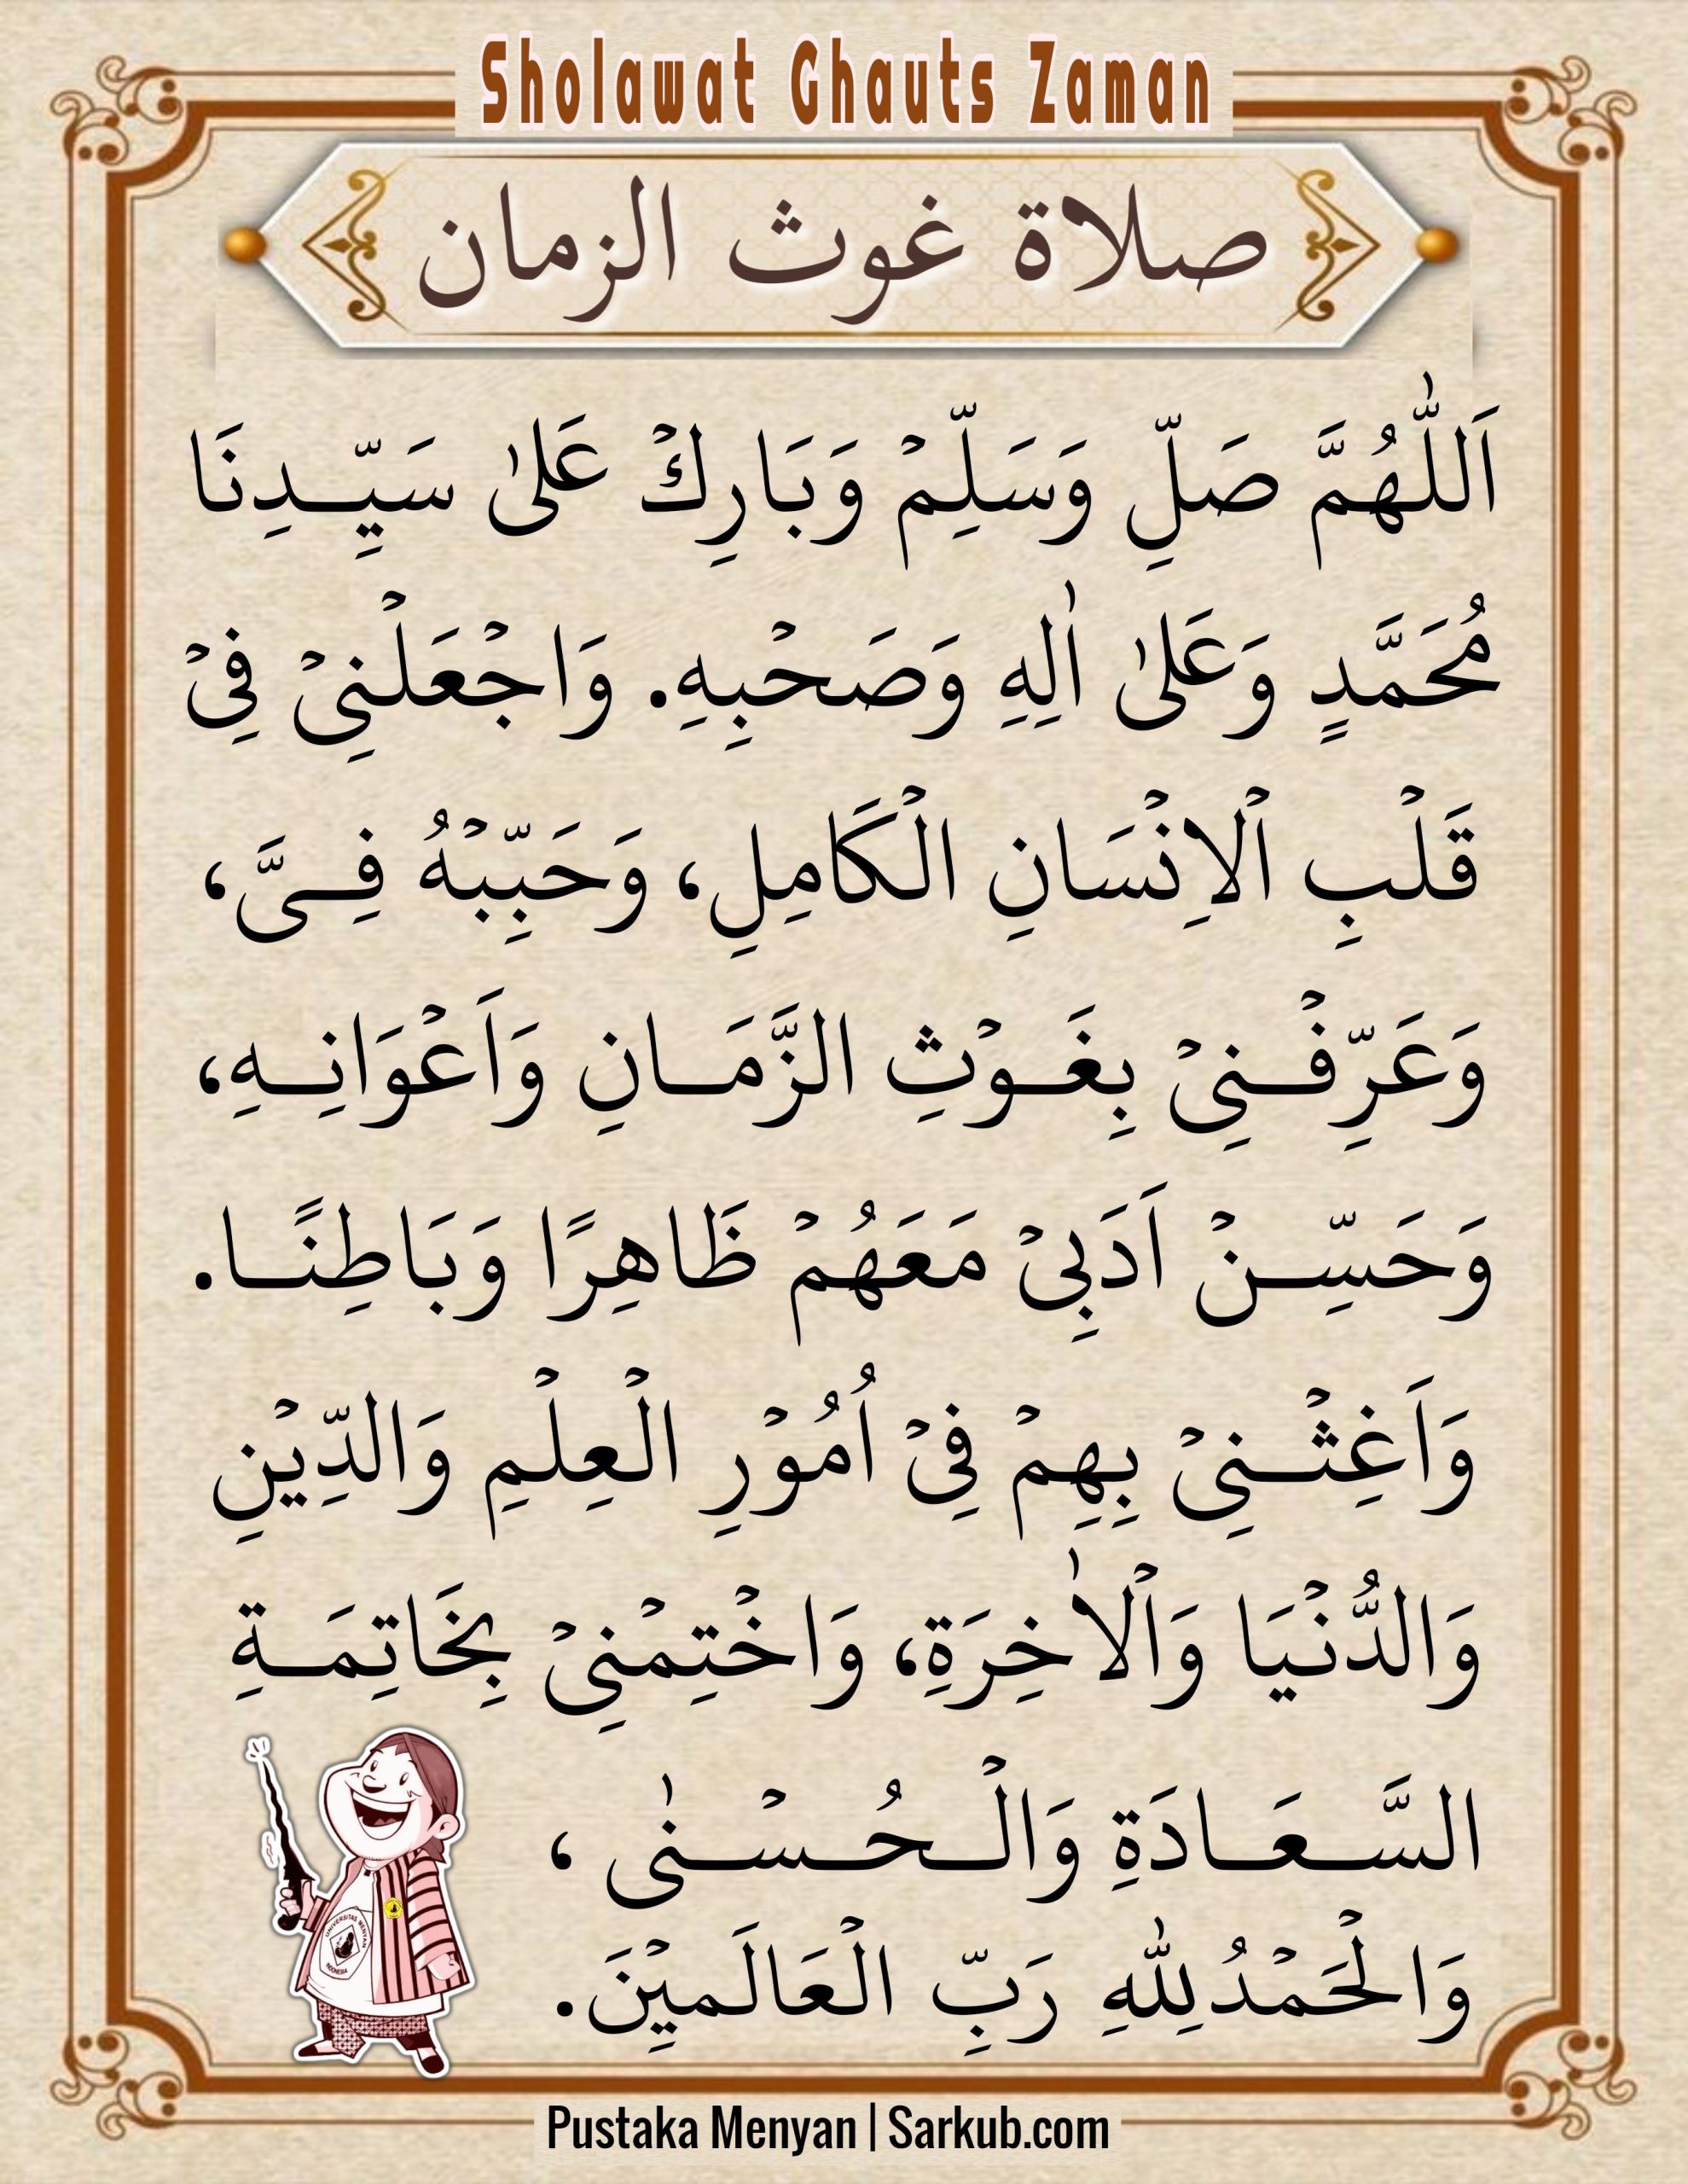 Sholawat Ghauts Zaman
صلاة غوث الزمان
اَللّٰهُمَّ صَلِّ وَسَلِّمْ وَبَارِكْ عَلىٰ سَيِّدِنَا
مُحَمَّدٍ وَعَلىٰ اٰلِهِ وَصَحْبِهِ. وَاجْعَلْنِيْ فِيْ
قَلْبِ اْلاِنْسَانِ الْكَامِلِ، وَحَبِّبْهُ فِيَّ،
وَعَرِّفْنِيْ بِغَوْثِ الزَّمَانِ وَاَعْوَانِهِ،
وَحَسِّنْ اَدَبِيْ مَعَهُمْ ظَاهِرًا وَبَاطِنًا.
وَاَغِثْنِيْ بِهِمْ فِيْ اُمُوْرِ الْعِلْمِ وَالدِّيْنِ
وَالدُّنْيَا وَاْلاٰخِرَةِ، وَاخْتِمْنِيْ بِخَاتِمَةِ
السَّعَادَةِ وَالْحُسْنٰى ،
وَالْحَمْدُ لِلّٰهِ رَبِّ الْعَالَمِيْنَ.
UNIVERSITAS MENYAN
INDONESIA
Pustaka Menyan | Sarkub.com